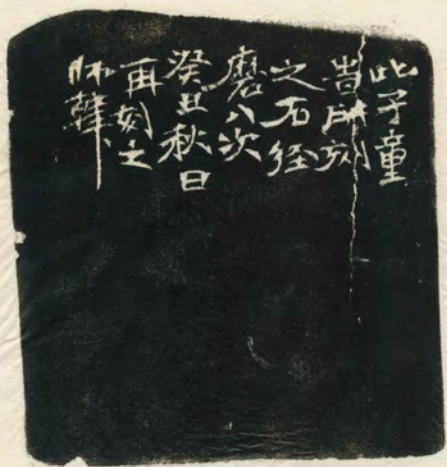 此予童
旹所刻
之石经
磨八次
癸丑秋日
再刻之